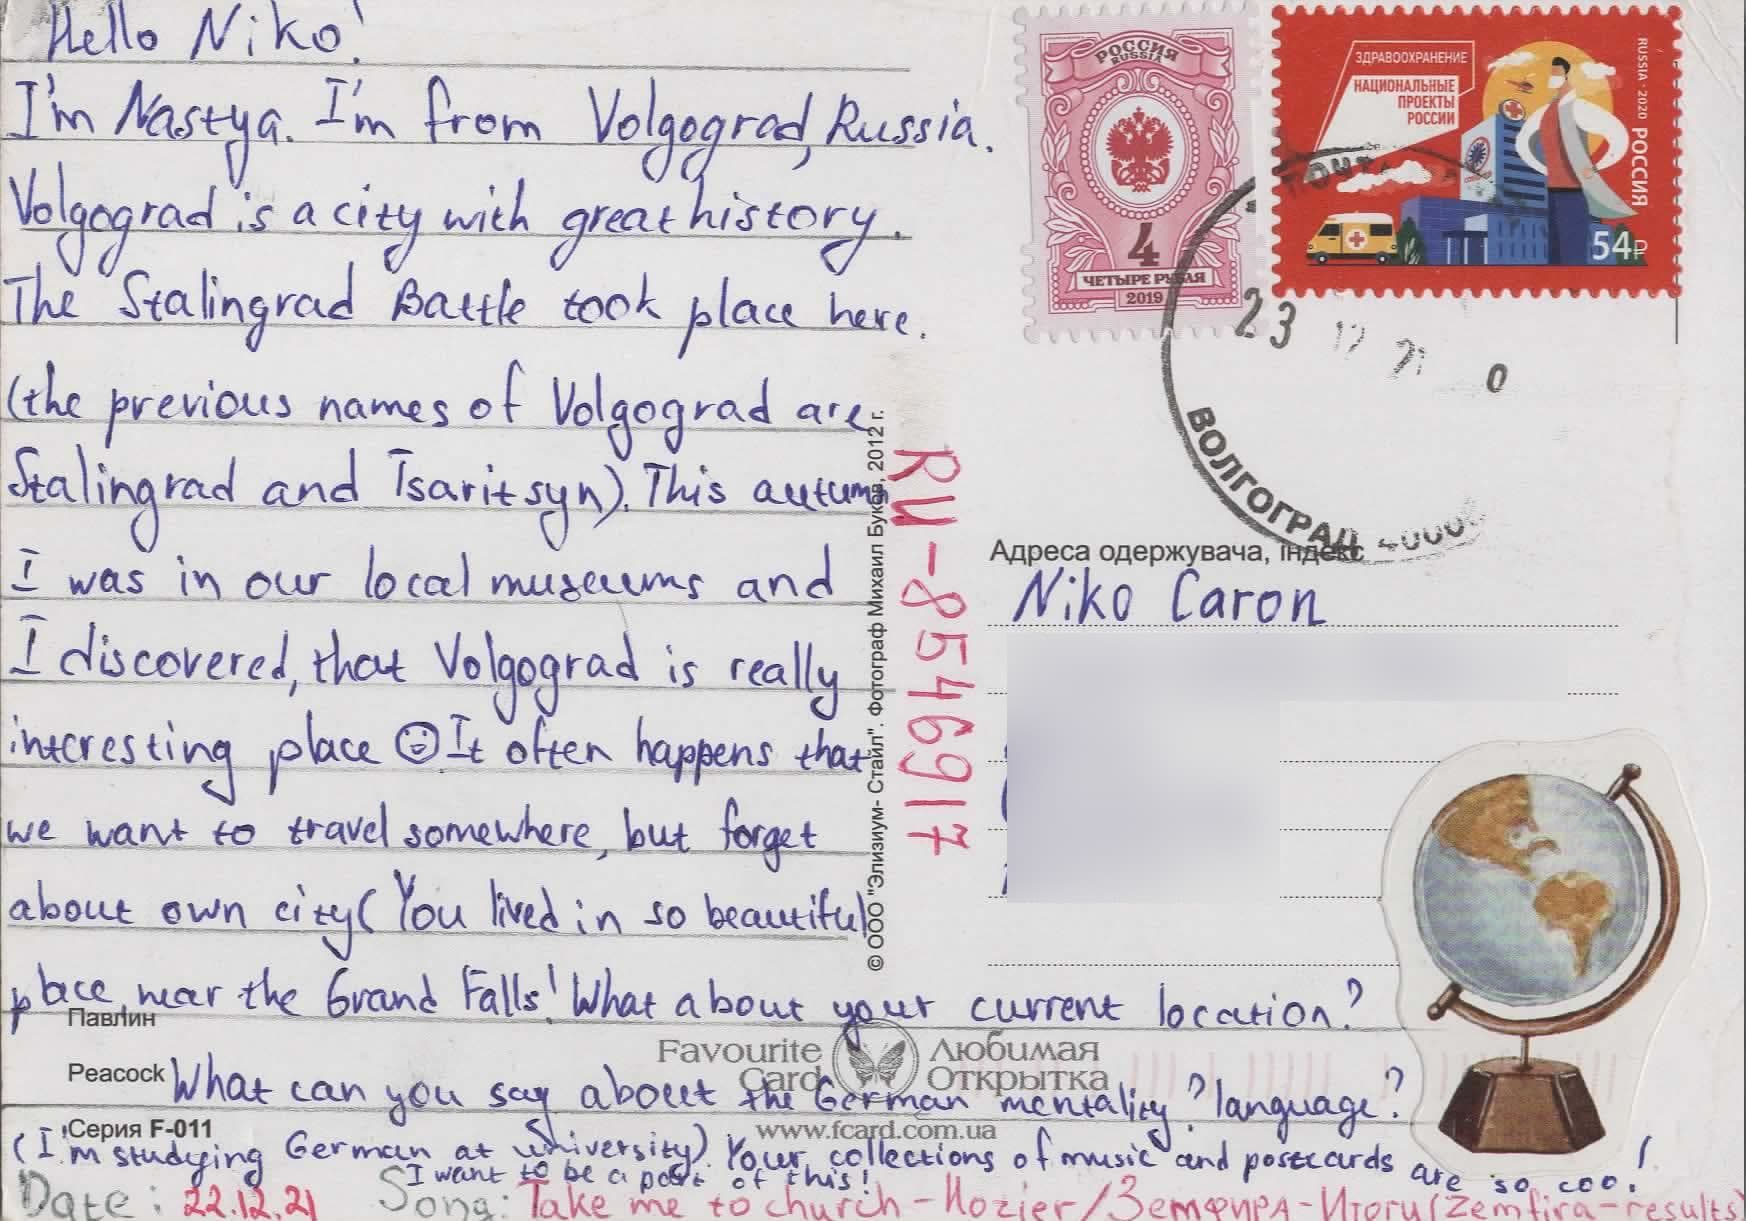 Hello Niko!
I'm Nastya. I'm from Volgograd, Russia.
Volgograd is a city with great history.
The Stalingrad Battle took place here.
(the previous names of Volgograd are
Stalingrad and Tsaritsyn). This autumn
I was in our local museums and
I discovered, that Volgograd is really
interesting place It often happens that
we want to travel somewhere, but forget
about own city( You lived in so beautiful
place, near the Grand Falls! What about your current location?
What can you say about the German mentality? language?
(I'm studying German at university). Your collections of music and postcards are so cool!
I want to be a part of this!
Date: 22.12.21 Song: Take me to church - Hozier / Земфира - Итоги (Zemfira - results)
Павлин
Peacock
Серия F-011
Favourite Card
Любимая Открытка
www.fcard.com.ua
© ООО "Элизиум- Стайл". Фотограф Михаил Буков, 2012 г.
RU-8546917
РОССИЯ
RUSSIA
4
ЧЕТЫРЕ РУБЛЯ
2019
ЗДРАВООХРАНЕНИЕ
НАЦИОНАЛЬНЫЕ
ПРОЕКТЫ
РОССИИ
RUSSIA · 2020 РОССИЯ
54₽
23 12 21 0
ВОЛГОГРАД
Адреса одержувача, індекс
Niko Caron